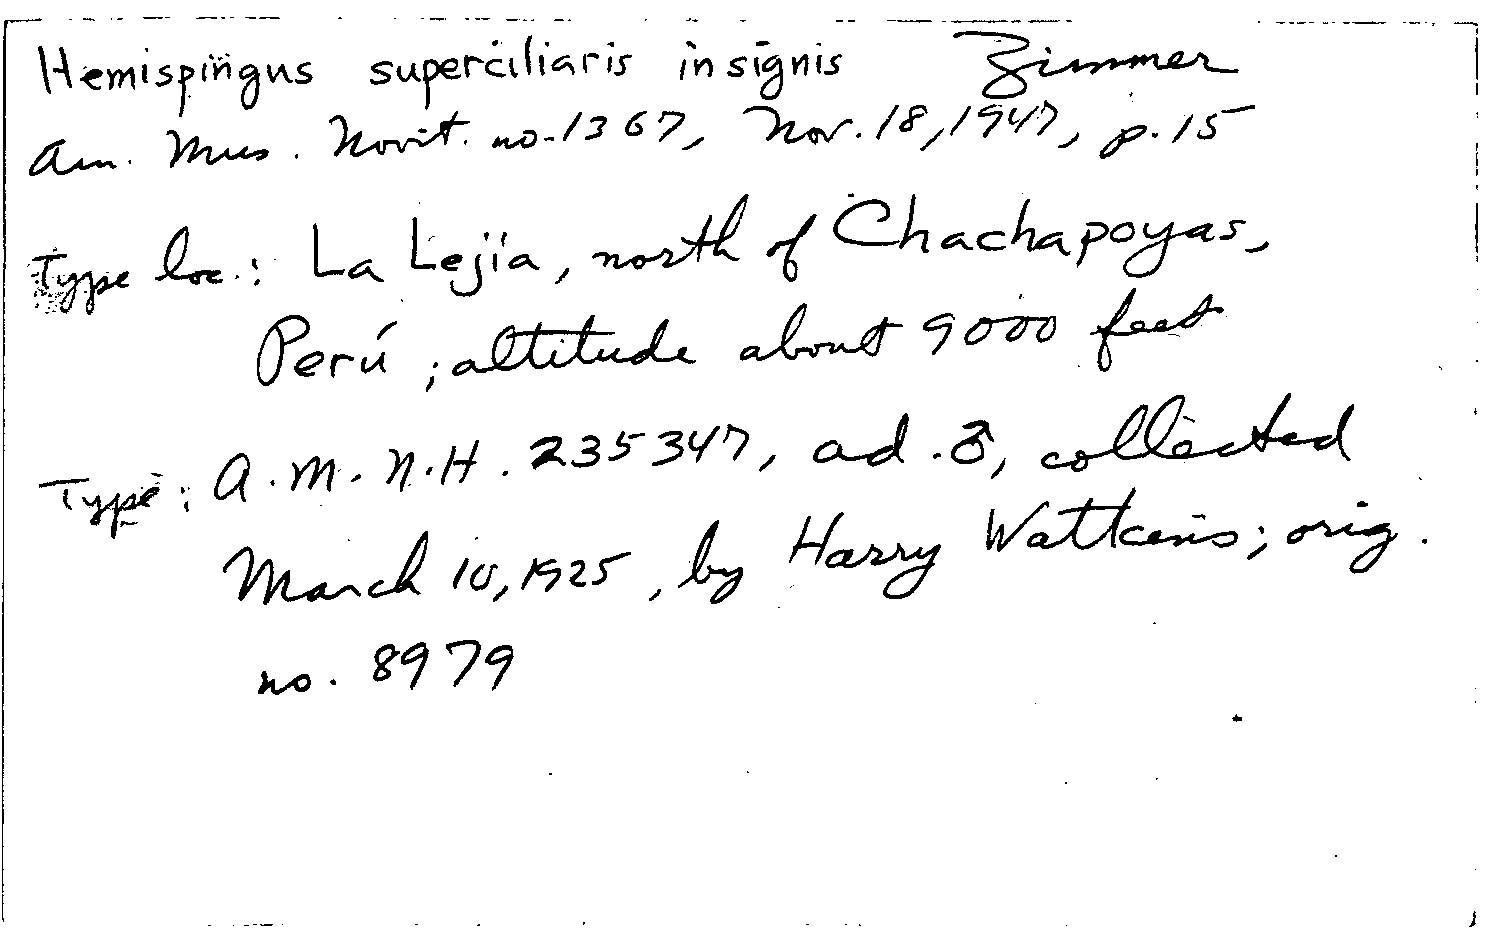 Hemispingus superciliaris insignis Zimmer
Am. Mus. Novit. no. 1367, Nov. 18, 1947, p. 15
Type loc.: La Lejía, north of Chachapoyas,
Perú; altitude about 9000 feet
Type: A.M.N.H. 235347, ad. ♂, collected
March 10, 1925, by Harry Watkins; orig.
no. 8979